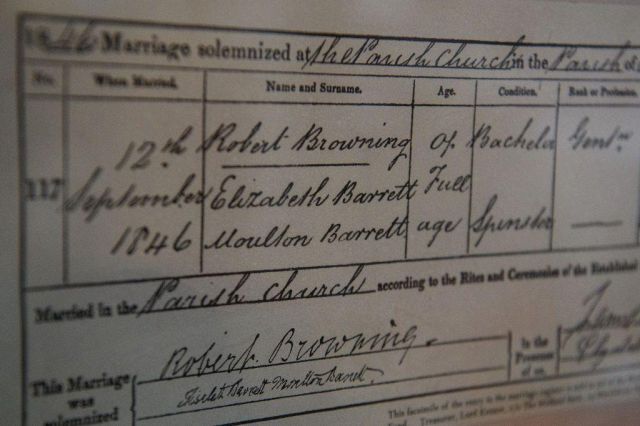 1846 Marriage solemnized at the Parish Church in the Parish of
No. When Married. Name and Surname. Age. Condition. Rank or Profession.
117 12th September 1846 Robert Browning of Full age Bachelor Gentn
Elizabeth Barrett Moulton Barrett Spinster
Married in the Parish Church according to the Rites and Ceremonies of the Established
This Marriage was solemnized Robert Browning. In the Presence of us,
Barrett Moulton Barrett.
This facsimile of the entry to the marriage